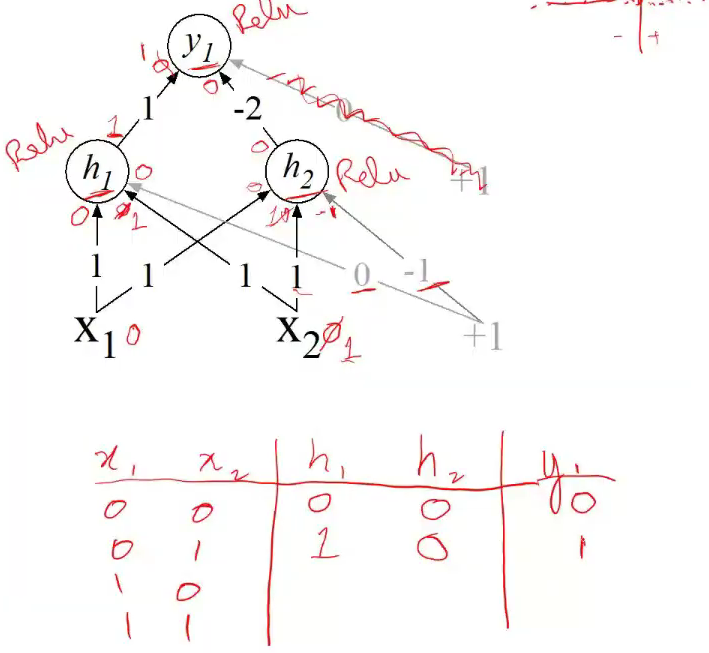 Relu
- +
y1
1 0 0
1 -2 0
Relu 1 0 +1
h1 0 h2 Relu
0 0 1 0 1 0 -1
1 1 1 1 0 -1
x1 0 x2 0 1 +1
x1 x2 h1 h2 y1
0 0 0 0 0
0 1 1 0 1
1 0
1 1